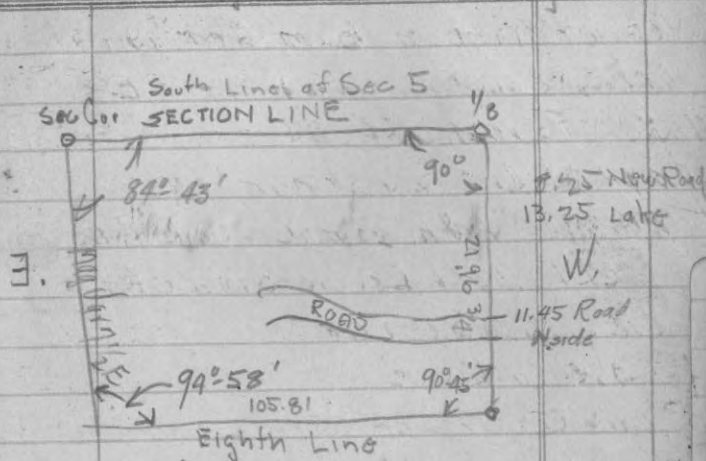 South Line of Sec 5
Sec Cor SECTION LINE 1/8
84° 43' 90°
.25 New Road
13.25 Lake
E. 21,96 W.
ROAD 11.45 Road
Nside
94° 58' 90° 45'
105.81
Eighth Line